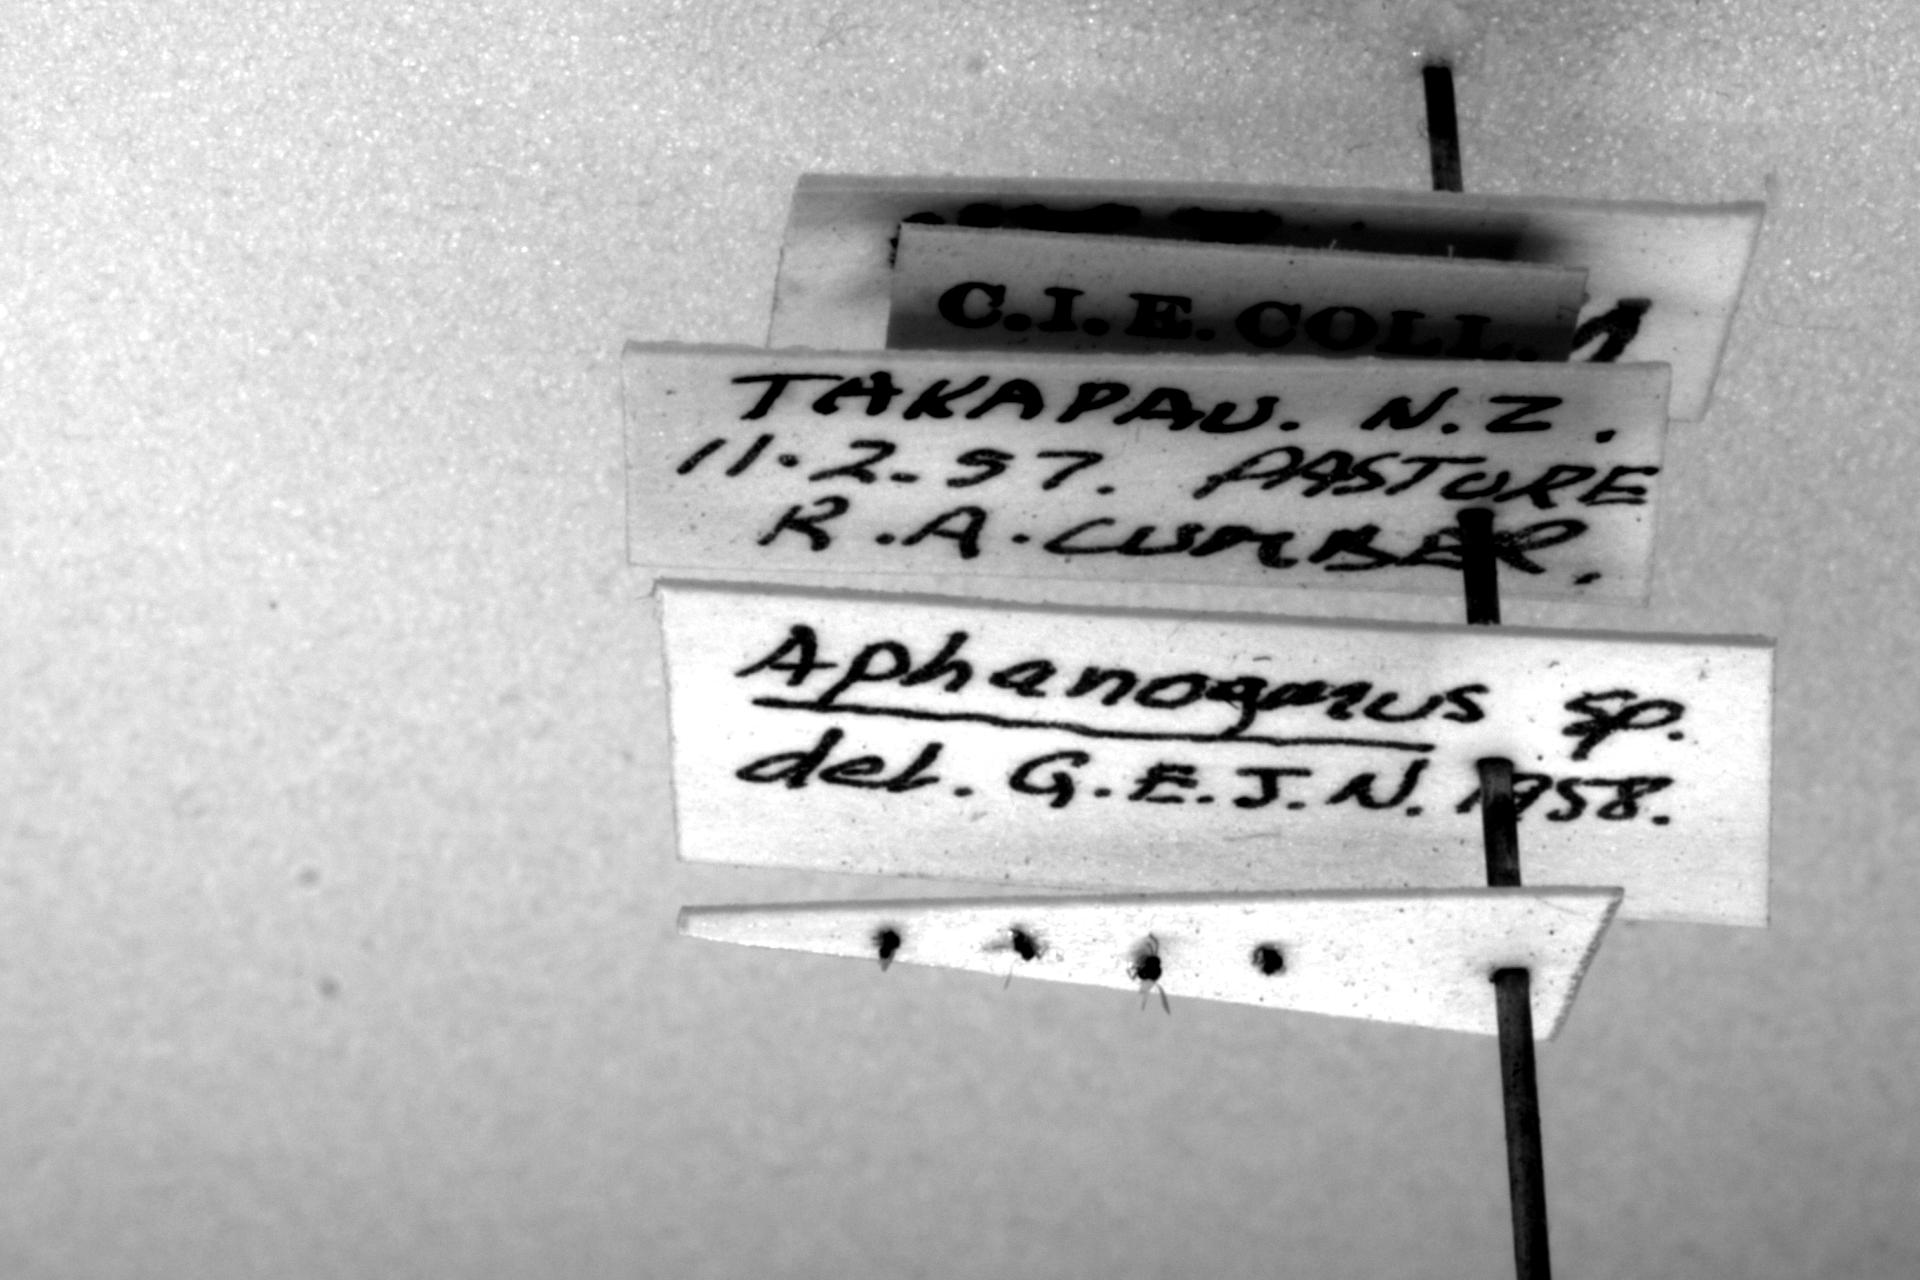 C.I.E. COLL.
TAKAPAU. N.Z.
11.2.57. PASTURE
R.A. CUMBER.
Aphanogmus sp.
det. G.E.J.N. 1958.